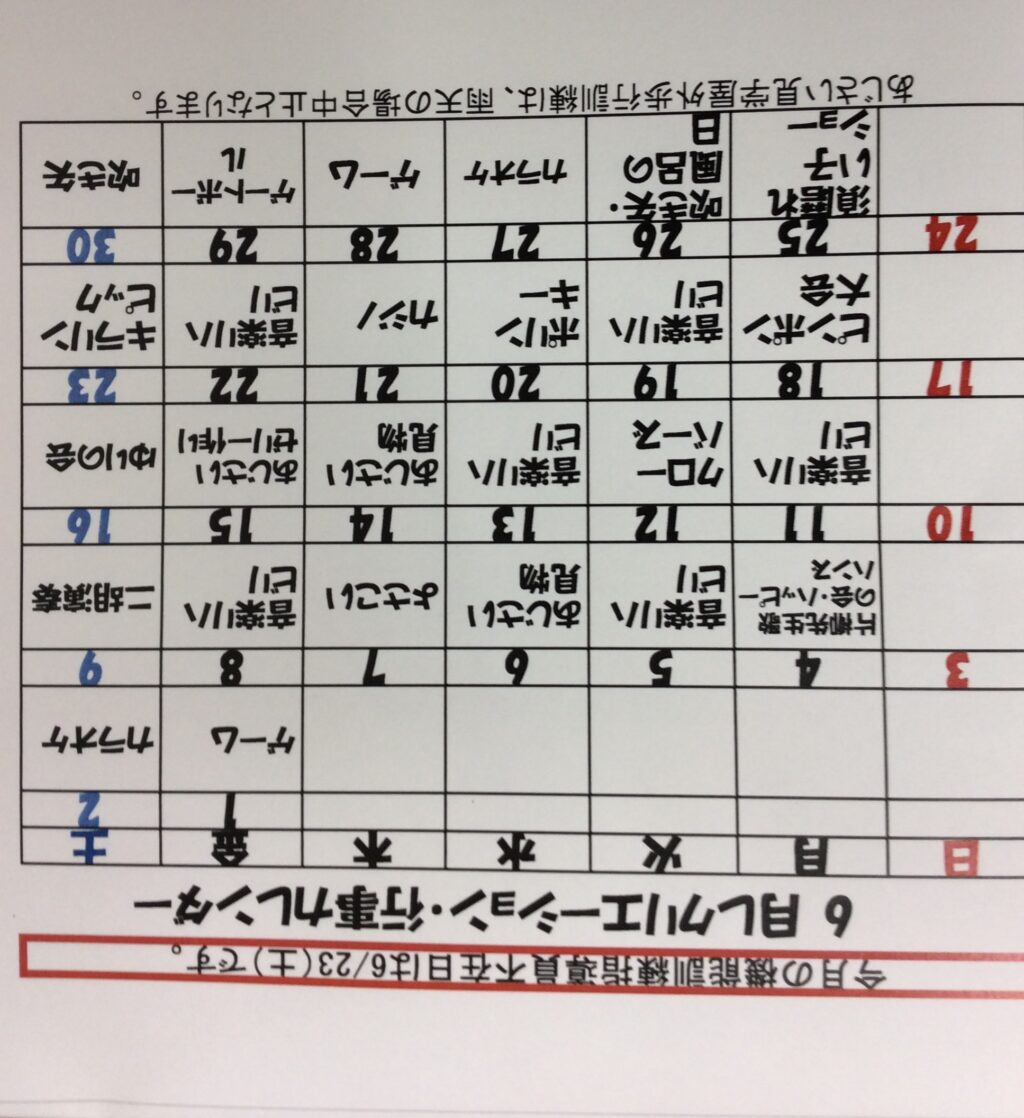 今月の機能訓練指導員不在日は6/23(土)です。
6月レクリエーション・行事カレンダー
日 月 火 水 木 金 土
1 2
ゲーム
カラオケ
3 4 5 6 7 8 9
片柳先生歌
の会・ハッピー
ハンズ
音楽リハ
ビリ
あじさい
見物
よさこい
音楽リハ
ビリ
二胡演奏
10 11 12 13 14 15 16
音楽リハ
ビリ
クロー
バーズ
音楽リハ
ビリ
あじさい
見物
あじさい
ゼリー作り
ゆりの会
17 18 19 20 21 22 23
ピンポン
大会
音楽リハ
ビリ
ポリン
キー
カジノ
音楽リハ
ビリ
キラリン
ピック
24 25 26 27 28 29 30
須磨れ
い子
ショー
吹き矢・
風呂の
日
カラオケ
ゲーム
ゲートボー
ル
吹き矢
あじさい見学屋外歩行訓練は、雨天の場合中止となります。